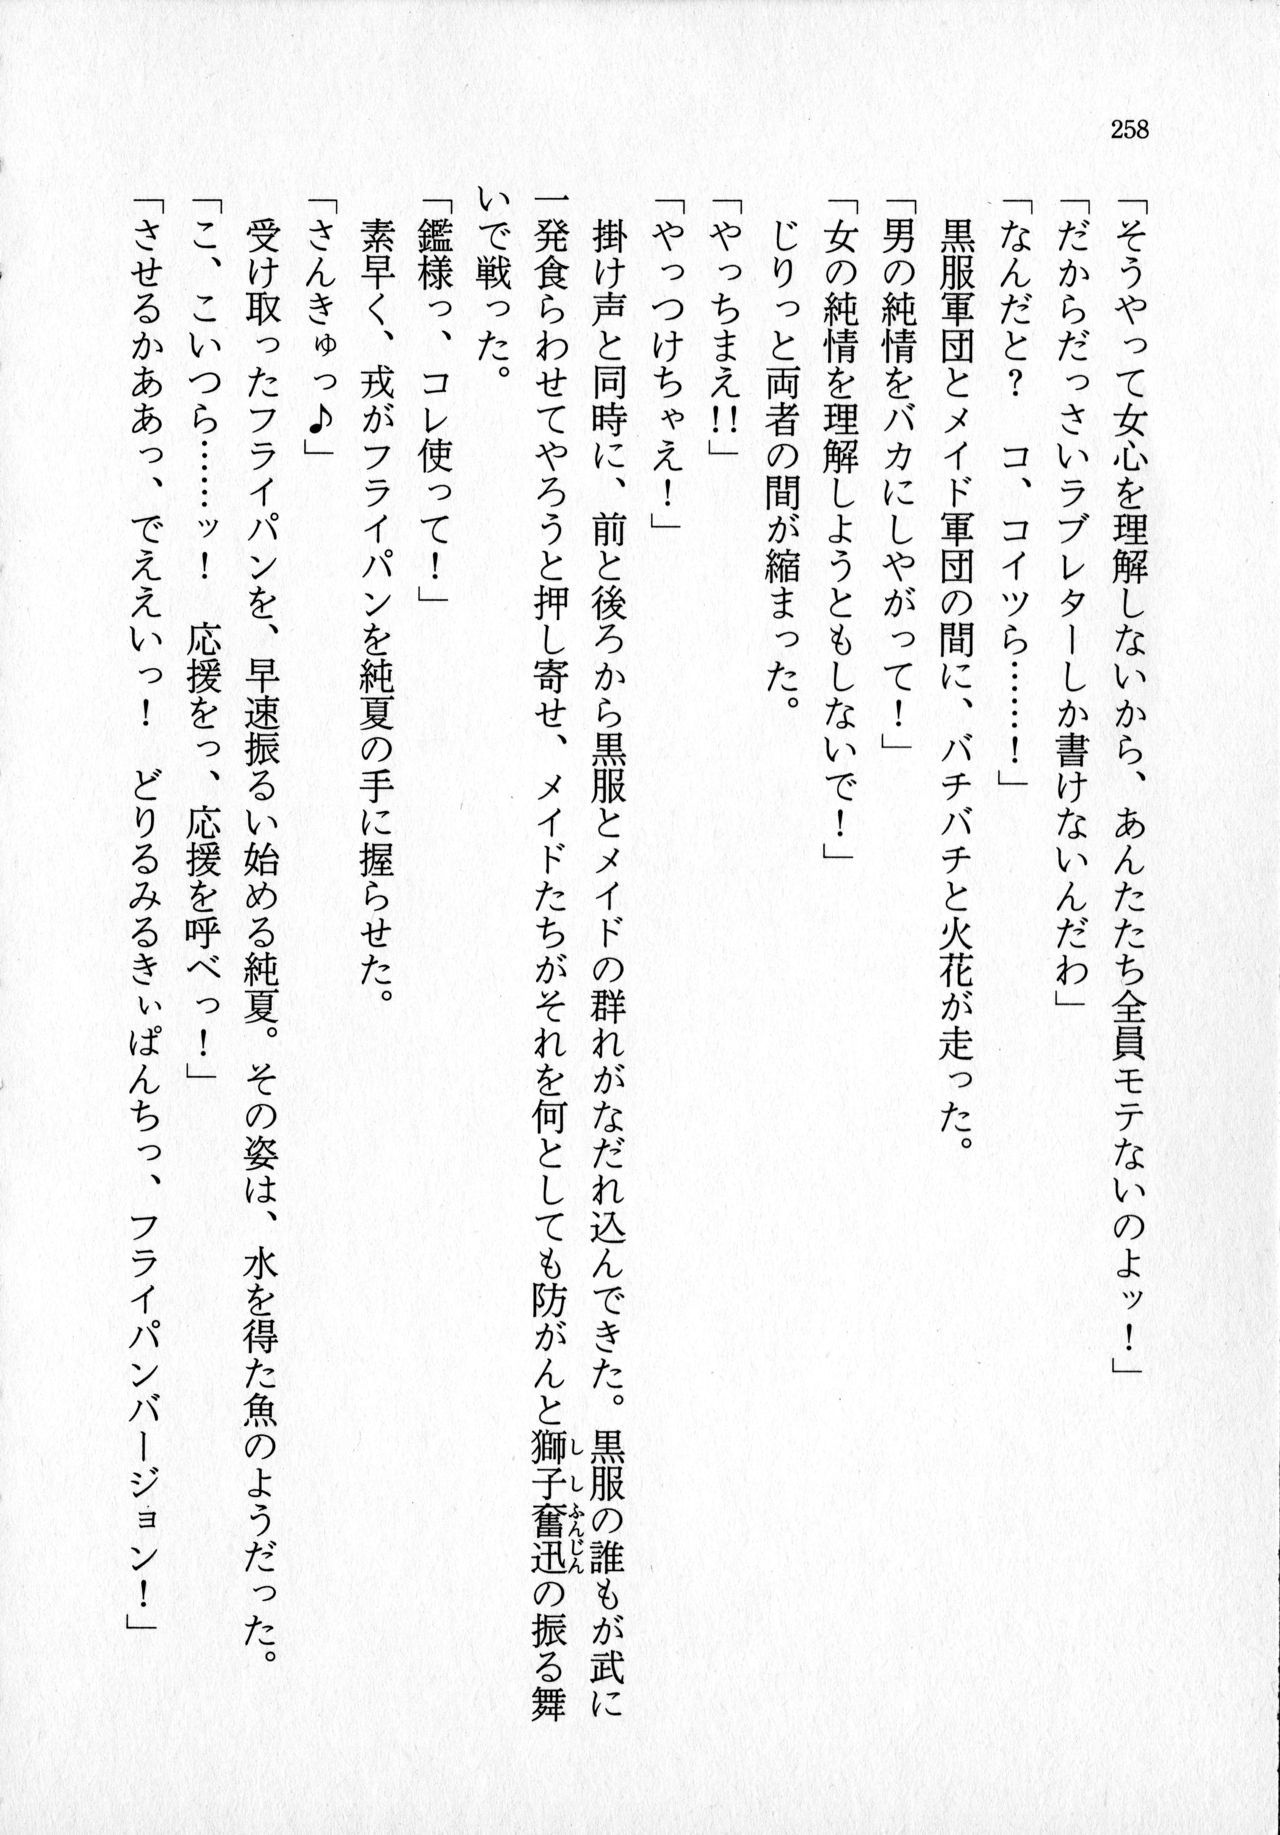 258
「そうやって女心を理解しないから、あんたたち全員モテないのよッ！」
「だからだっさいラブレターしか書けないんだわ」
「なんだと？　コ、コイツら……！」
　黒服軍団とメイド軍団の間に、バチバチと火花が走った。
「男の純情をバカにしやがって！」
「女の純情を理解しようともしないで！」
　じりっと両者の間が縮まった。
「やっちまえ!!」
「やっつけちゃえ！」
　掛け声と同時に、前と後ろから黒服とメイドの群れがなだれ込んできた。黒服の誰もが武に
一発食らわせてやろうと押し寄せ、メイドたちがそれを何としても防がんと獅子奮迅の振る舞
ししふんじん
いで戦った。
「鑑様っ、コレ使って！」
　素早く、戎がフライパンを純夏の手に握らせた。
「さんきゅっ♪」
　受け取ったフライパンを、早速振るい始める純夏。その姿は、水を得た魚のようだった。
「こ、こいつら……ッ！　応援をっ、応援を呼べっ！」
「させるかああっ、でええいっ！　どりるみるきぃぱんちっ、フライパンバージョン！」